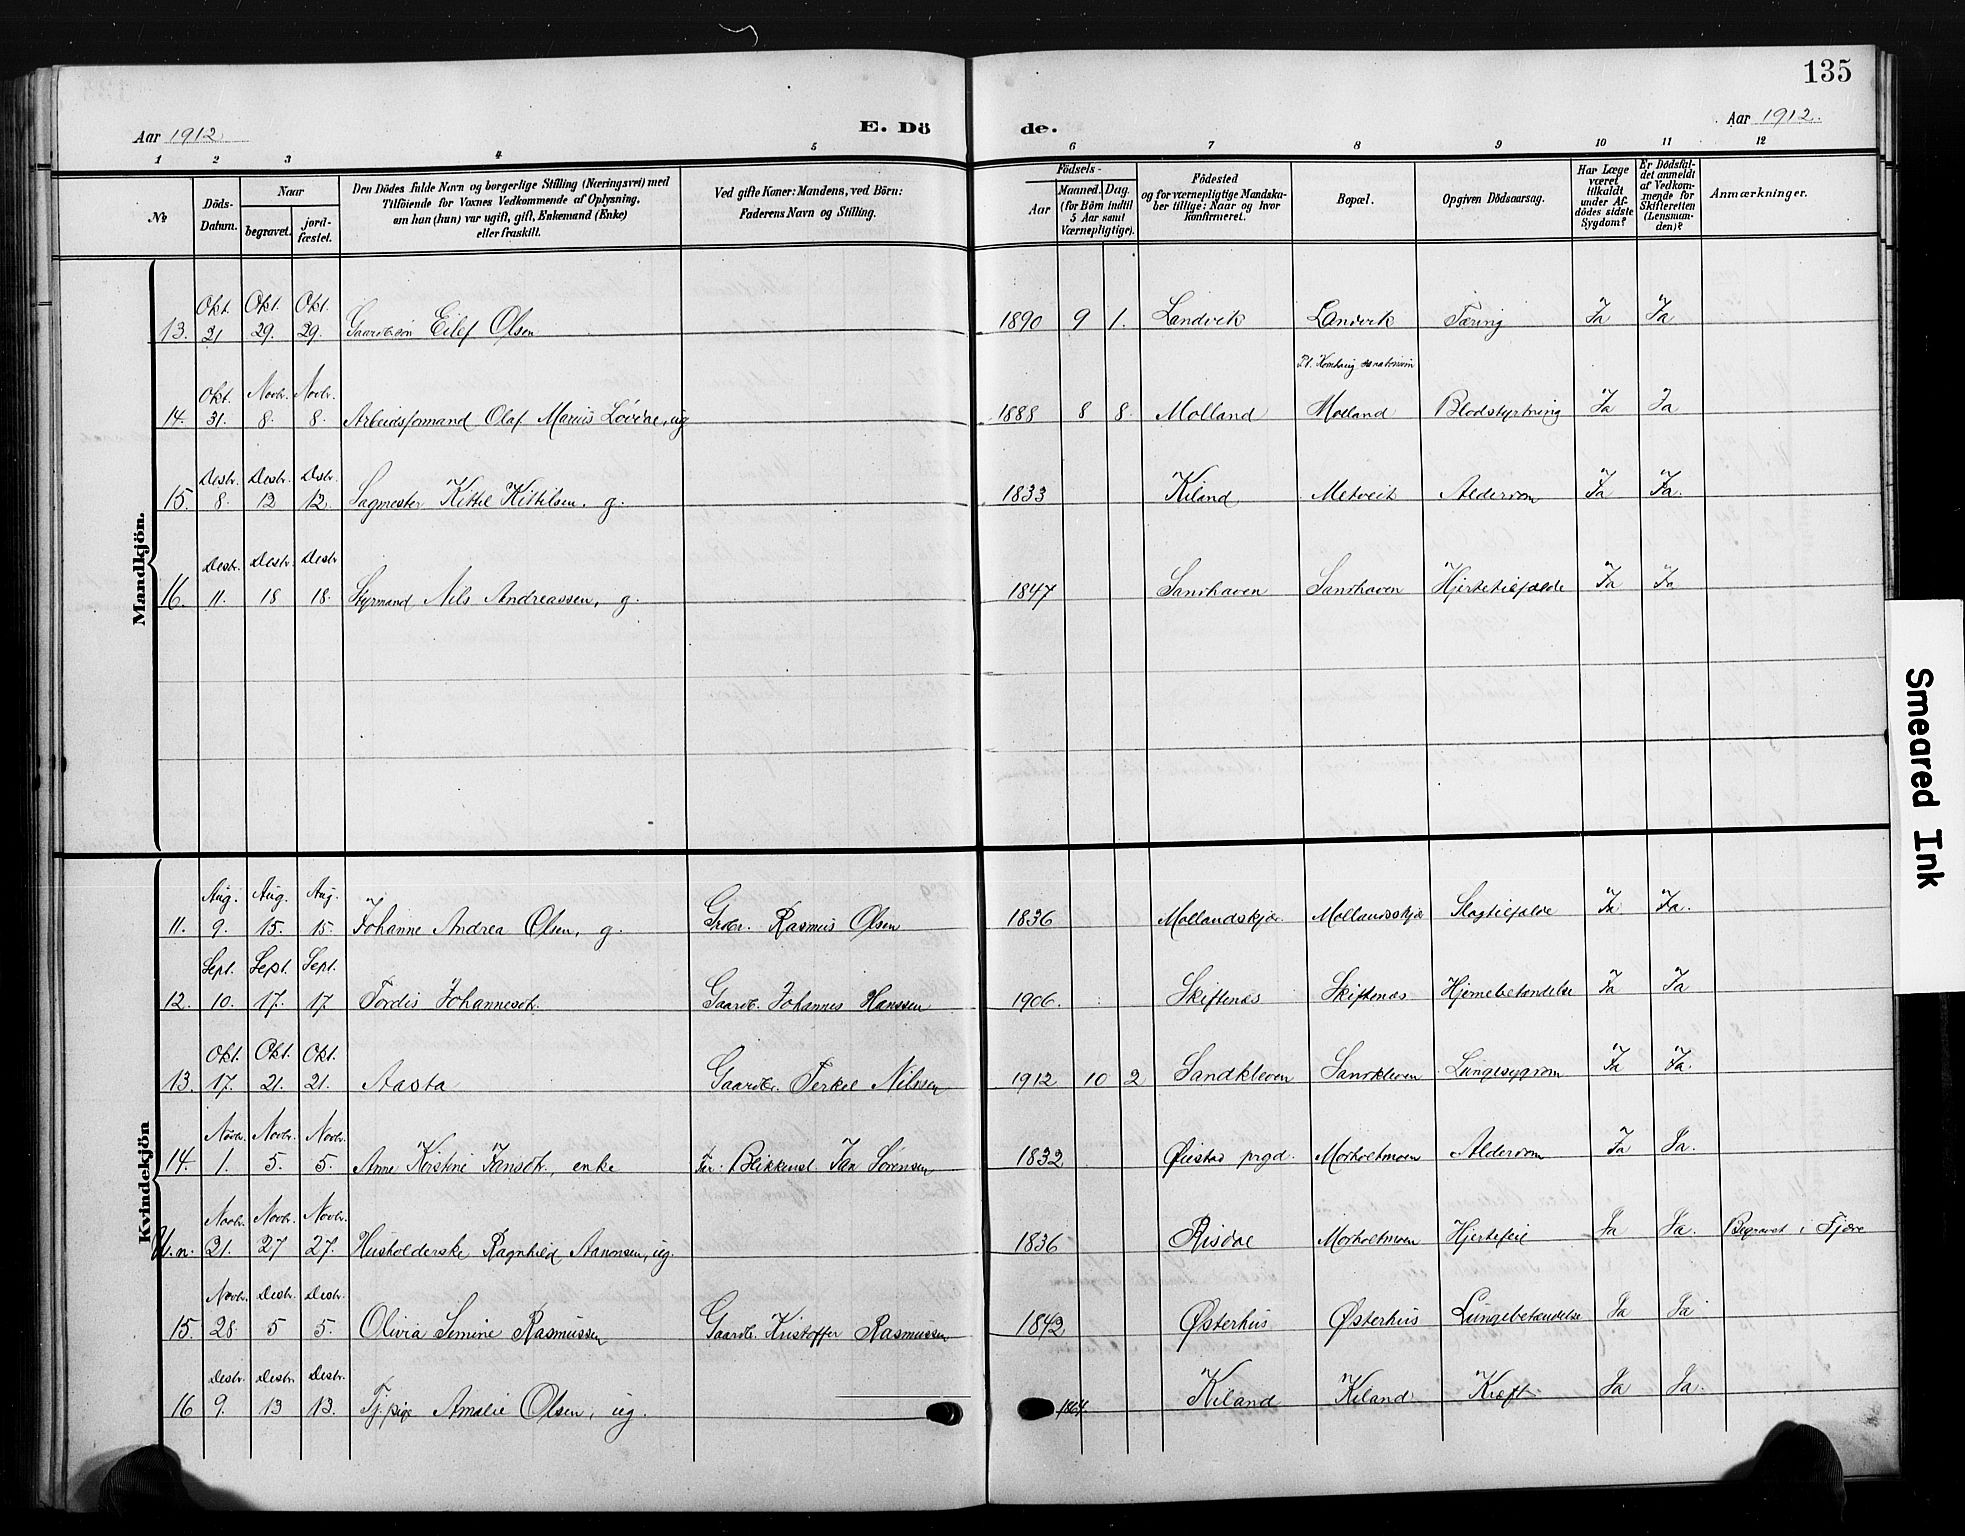 135
Aar 1912
E. Dö de.
Aar 1912.
1 2 3 4 5 6 7 8 9 10 11 12
№
Döds-Datum.
Naar
begravet.
jord-fæstet.
Den Dödes fulde Navn og borgerlige Stilling (Næringsvei) med
Tilföiende for Voxnes Vedkommende af Oplysning,
om han (hun) var ugift, gift, Enkemand (Enke)
eller fraskilt.
Ved gifte Koner: Mandens, ved Börn:
Faderens Navn og Stilling.
Födsels-
Aar
Maaned. Dag.
(for Börn indtil
5 Aar samt
Værnepligtige).
Födested
og for værnepligtige Mandska-
ber tillige: Naar og hvor
konfirmeret.
Bopæl.
Opgiven Dödsaarsag.
Har Læge
været
tilkaldt
under Af-
dödes sidste
Sygdom?
Er Dödsfal-
det anmeldt
af Vedkom-
mende for
Skifteretten
(Lensman-
den)?
Anmærkninger.
Mandkjön.
13. Okt. 21 Okt. 29. Okt. 29. Gaardbrsøn Eilef Olsen 1890 9 1. Landvik Landvik Tæring Ja Ja
Pt. Kornhaug sanatorium
14. Okt. 31. Novbr. 8. Novbr. 8. Arbeidsformand Olaf Marius Løvdal, ug 1888 8 8. Molland Molland Blodstyrtning Ja Ja
15. Desbr. 8. Desbr. 12 Desbr. 12. Sagmester Kittil Kittilsen, g. 1833 Kiland Metveit Alderdom Ja Ja.
16. Desbr. 11. Desbr. 18 Desbr 18. Styrmand Nils Andreassen, g. 1847 Sandhaven Sandhaven Hjertetilfælde Ja Ja
Kvindekjön
11. Aug. 9. Aug. 15. Aug. 15. Johanne Andrea Olsen, g. Grdbr. Rasmus Olsen 1836 Mollandskjær Mollandskjær Slagtilfælde Ja Ja.
12. Sept. 10. Sept. 17. Sept. 17 Tordis Johannesdt. Gaardb. Johannes Hanssen 1906. Skiftenæs Skiftenæs Hjernebetændelse Ja Ja
13. Okt. 17. Okt. 21. Okt. 21. Aasta Gaardbr. Terkel Nilssen 1912 10 2 Sandkleven Sandkleven Lungesygdom Ja Ja.
14. Novbr. 1. Novbr. 5. Novbr. 5. Anne Kristine Jansdt., enke Far: Blikkensl. Jan Sørensen 1832 Øiestad prgd. Morholtmoen Alderdom Ja Ja.
U.n. Novbr. 21. Novbr. 27 Novbr. 27. Husholderske Ragnhild Aanonsen, ug. 1836 Risdal Morholtmoen Hjertefeil Ja Ja. Begravet i Fjære
15. Novbr. 28. Desbr. 5 Desbr. 5. Olivia Semine Rasmussen Gaardb. Kristoffer Rasmussen 1842 Østerhus Østerhus Lungebetændelse Ja Ja
16 Desbr. 9. Desbr. 13 Desbr. 13. Tj.pige Amalie Olsen, ug. 1864. Kiland Kiland Kræft Ja Ja.
Smeared Ink